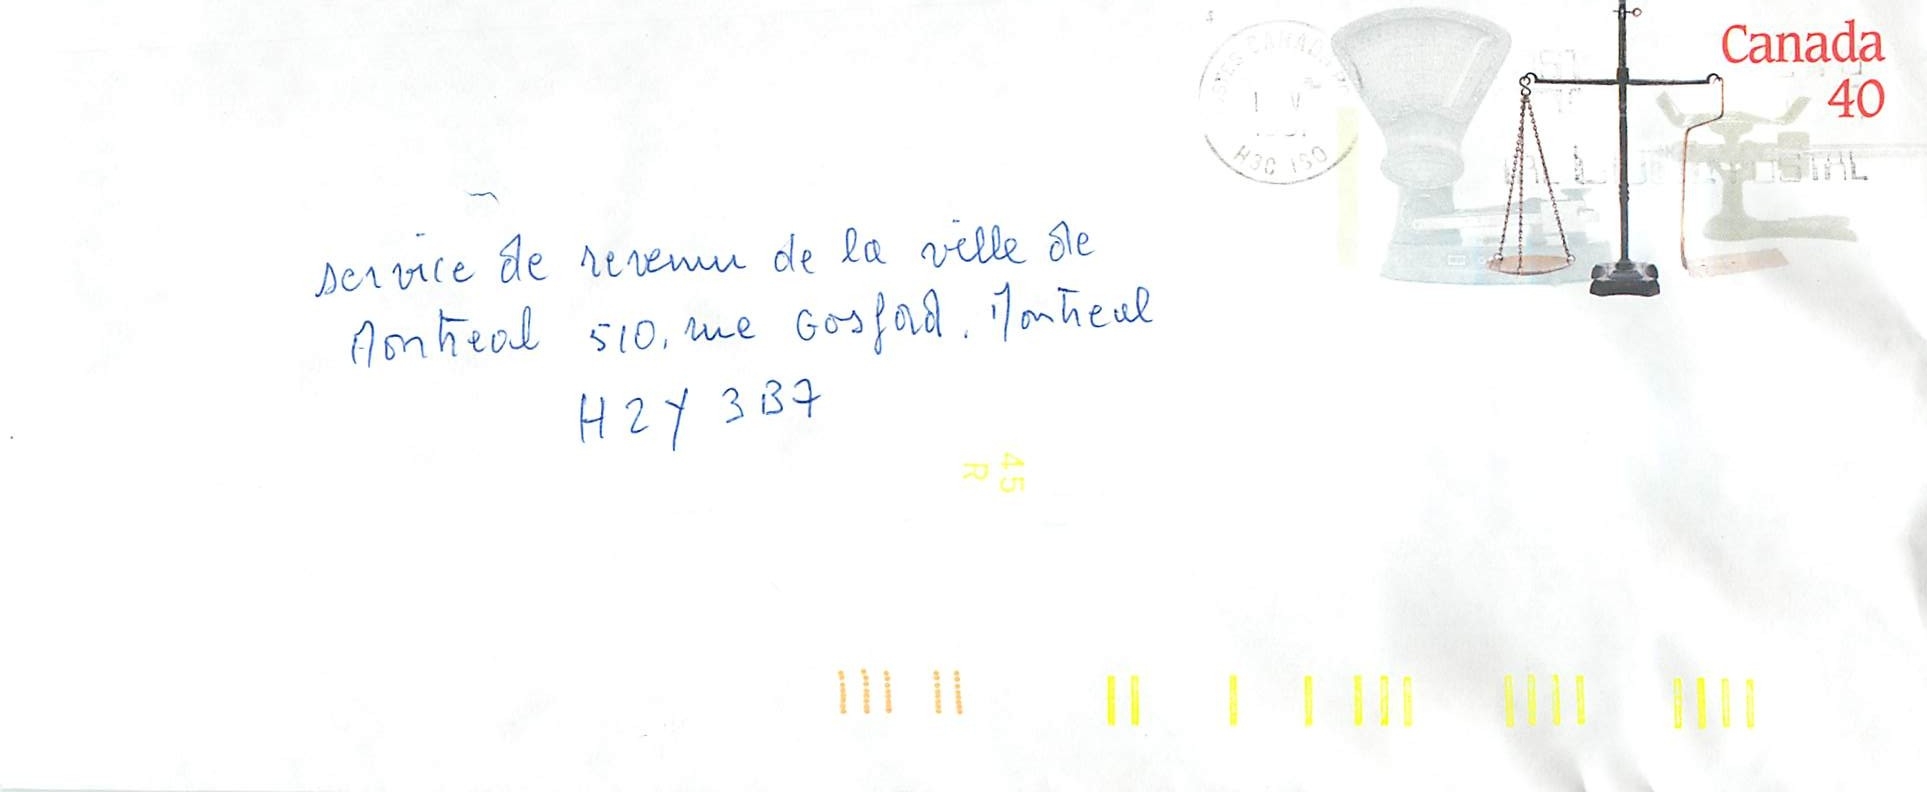 Canada
40
H3C 1S0
service de revenu de la ville de
Montreal 510, rue Gosford. Montreal
H2Y 3B7
45
R